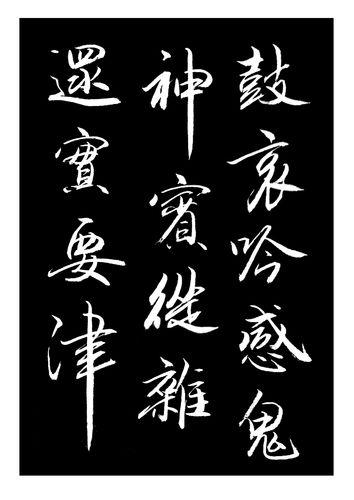 鼓哀吟感鬼
神賓從雜
遝實要津